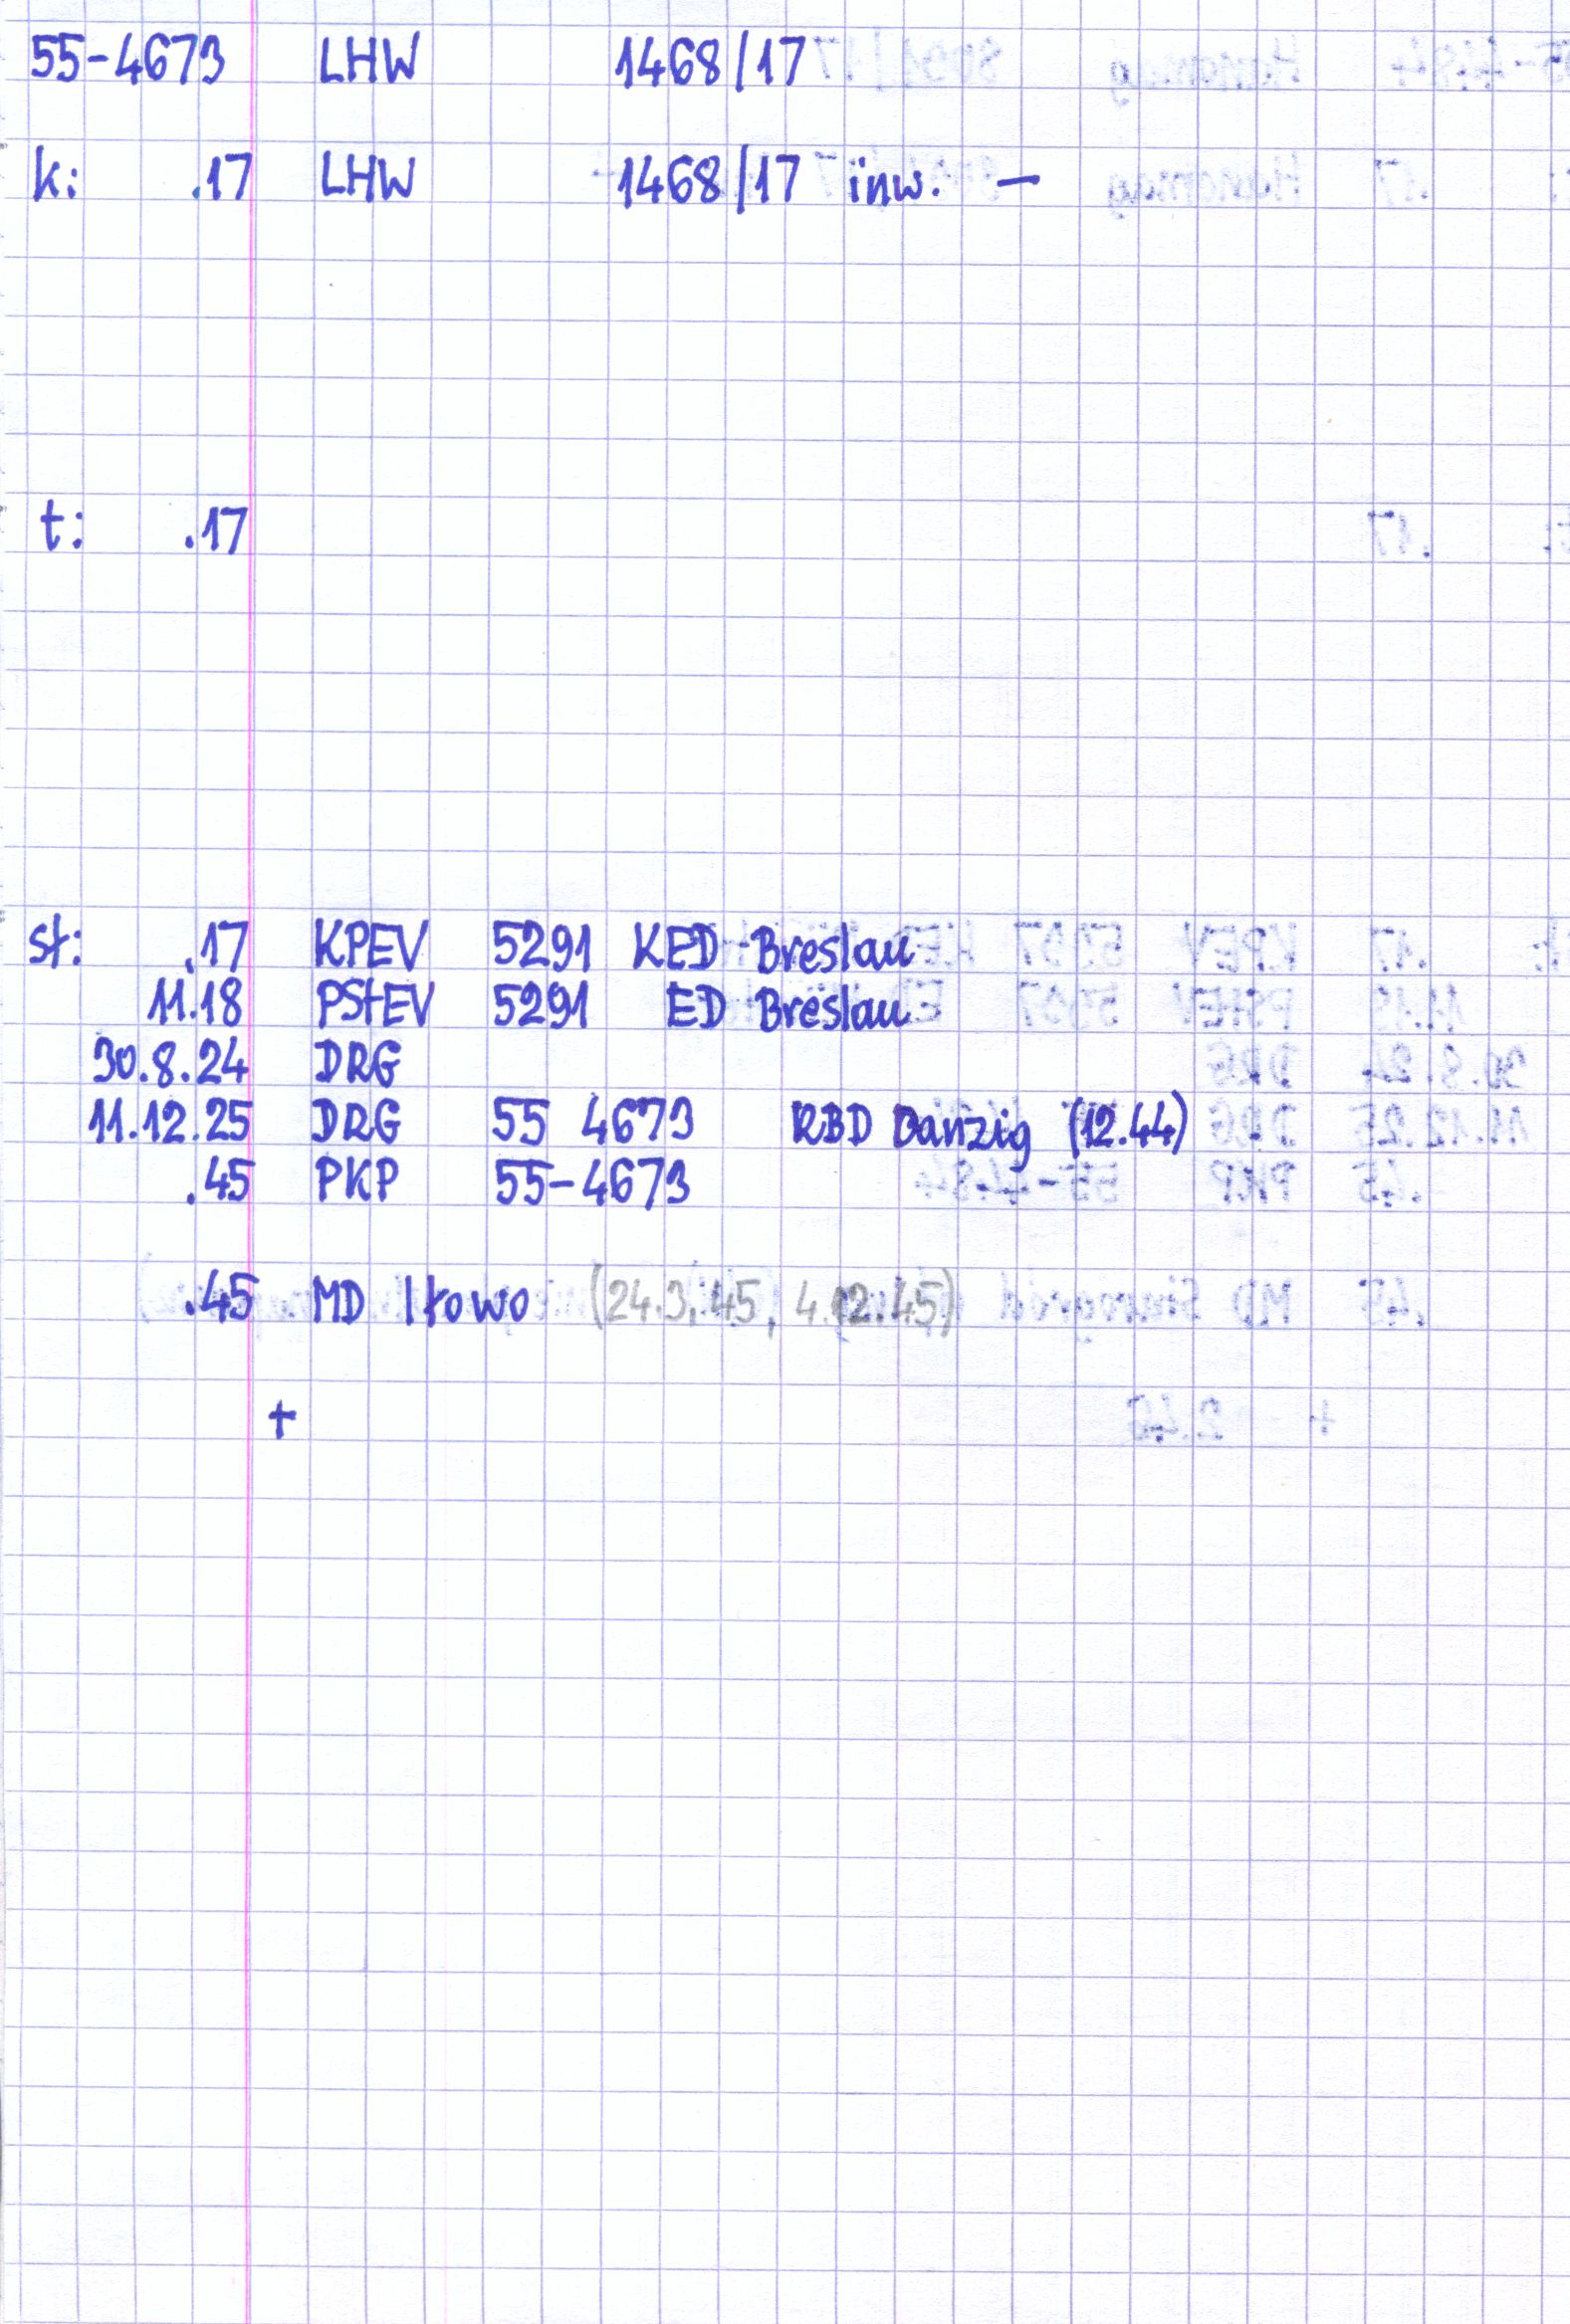 55-4673 LHW 1468/17
k: .17 LHW 1468/17 inw. —
t: .17
st: .17 KPEV 5291 KED Breslau
11.18 PStEV 5291 ED Breslau
30.8.24 DRG
11.12.25 DRG 55 4673 RBD Danzig (12.44)
.45 PKP 55-4673
.45 MD Iłowo (24.3.45, 4.12.45)
+